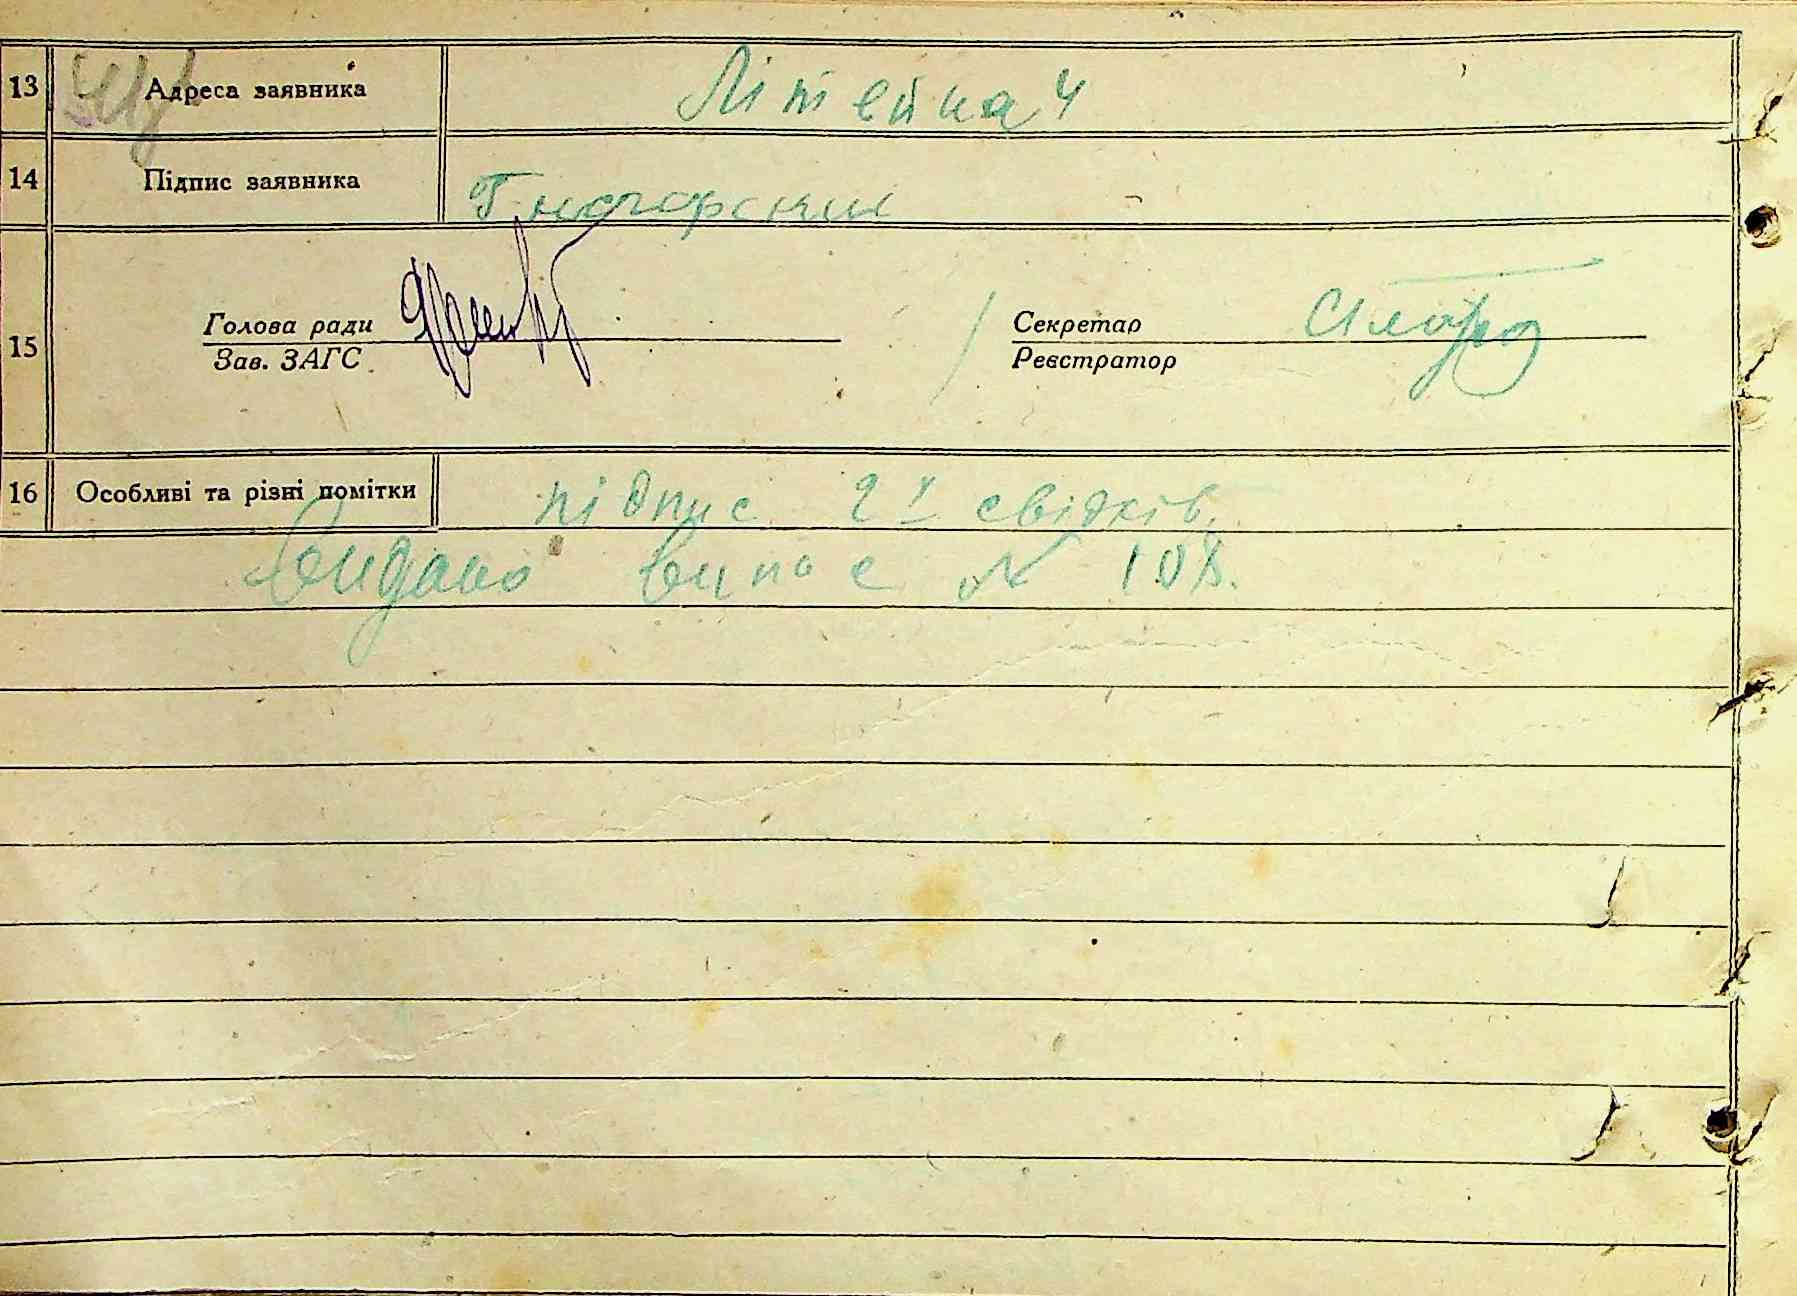 13 Адреса заявника Літейна 4
14 Підпис заявника
15 Голова ради Секретар
Зав. ЗАГС Реєстратор
16 Особливі та різні помітки підпис 2х свідків.
Видано випис № 108.